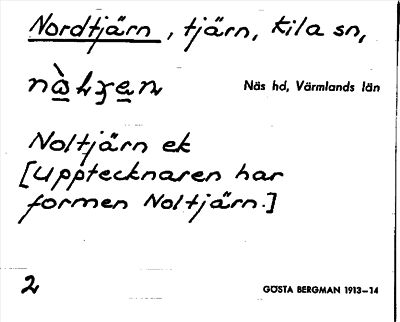 Nordtjärn, tjärn, Kila sn,
Näs hd, Värmlands län
Noltjärn ek
[Upptecknaren har
formen Noltjärn.]
2
GÖSTA BERGMAN 1913–14